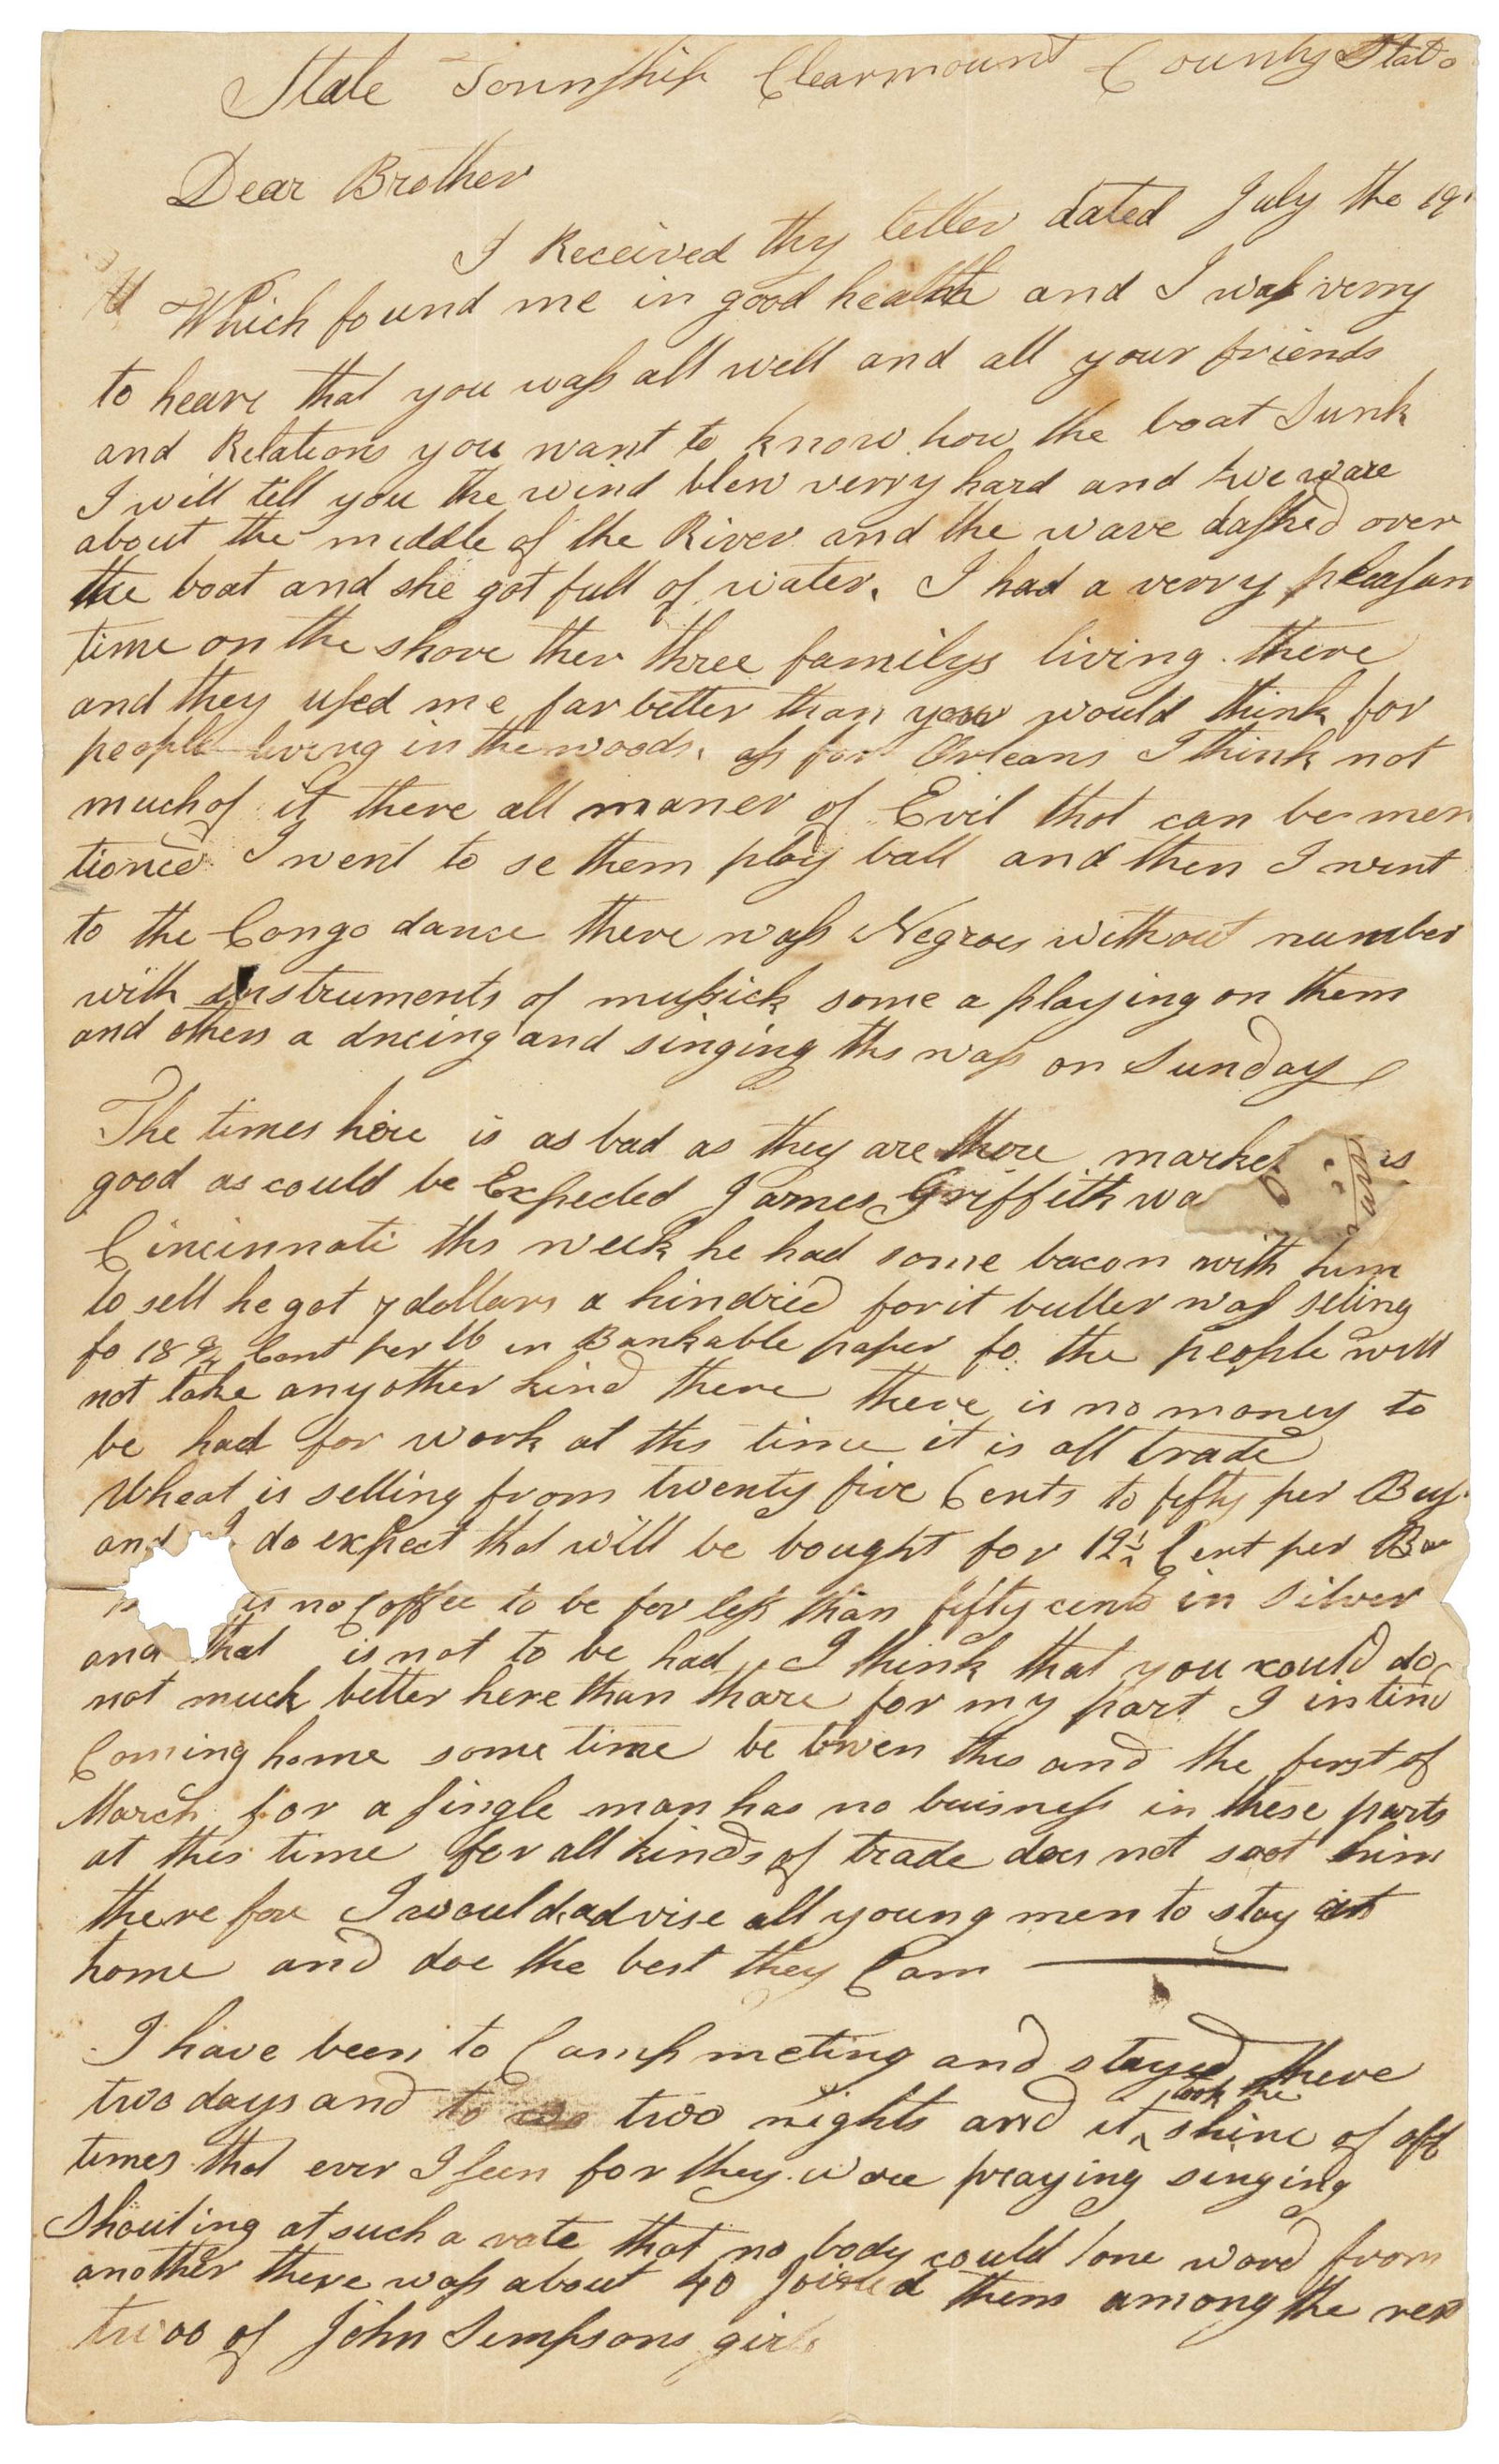 State Township Clearmount County Stat o
Dear Brother
I Received thy letter dated July the 19
Which found me in good health and I wass verry
to heare that you wass all well and all your friends
and Relations you want to know how the boat Sunk
I will till you the wind blew verry hard and we ware
about the middle of the River and the wave dashed over
the boat and she got full of water. I had a verry pleasan
time on the shore ther three familys living there
and they used me far better than you would think for
people living in the woods. ass for Orleans I think not
much of it there all maner of Evil that can be men
tioned I went to se them play ball and then I went
to the Congo dance there wass Negroes without number
with instruments of mussick some a playing on them
and others a dncing and singing ths wass on Sunday
The times here is as bad as they are there market is
good as could be Expected James Griffith wa
Cincinnati ths week he had some bacon with him
to sell he got 7 dollars a hindried for it butter was seling
fo 18 3/4 Cent per lb in Bankable paper fo the people will
not take any other kind there there is no money to
be had for work at ths time it is all trade
Wheat is selling from twenty five Cents to fifty per Bus
and I do expect that will be bought for 12 1/2 Cent per Bu
is no Coffee to be for less than fifty cents in silver
and that is not to be had I think that you could do
not much better here than thare for my part I intend
Coming home some time be twen this and the first of
March for a single man has no buisness in these parts
at this time for all kinds of trade does not soot him
there fore I would advise all young men to stay at
home and doe the best they Can
I have been to Camp meting and stayed there
two days and two nights and it took the shine of all
times that ever I seen for they ware praying singing
Shouting at such a rate that no body could one word from
another there wass about 40 Joined them among the res
twoo of John Simpsons girls